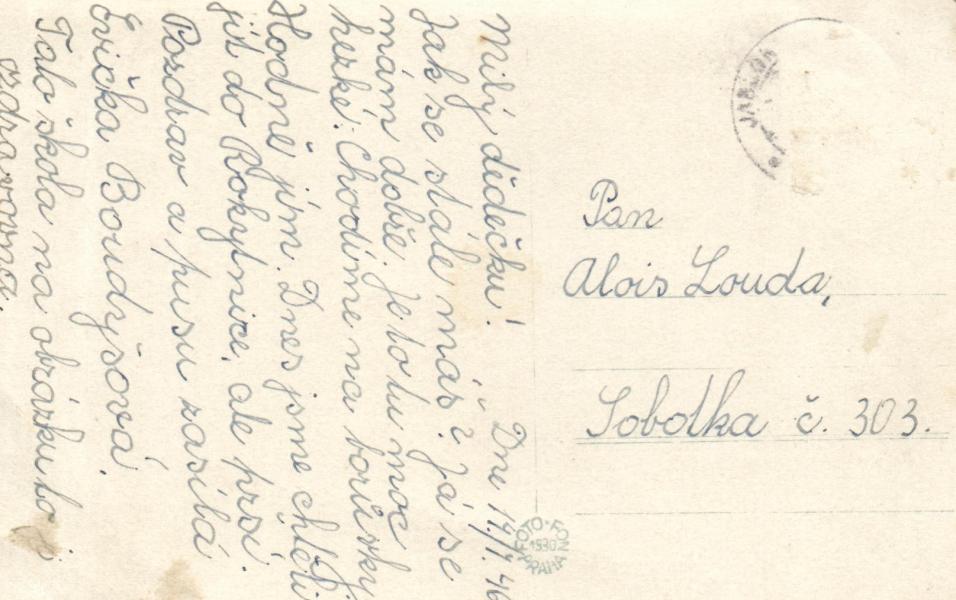 Milý dědečku! Dne 14/7. 46
Jak se stále máš? Já se
mám dobře. Je to tu moc
hezké. Chodíme na borůvky.
Hodně jím. Dnes jsme chtěli
jít do Rokytnice, ale prší.
Pozdrav a pusu zasílá
Evička Boudyšová.
Tato škola na obrázku to j
ozdravovna.
Pan
Alois Louda,
Sobotka č. 303.
FOTO-FON
1930
PRAHA